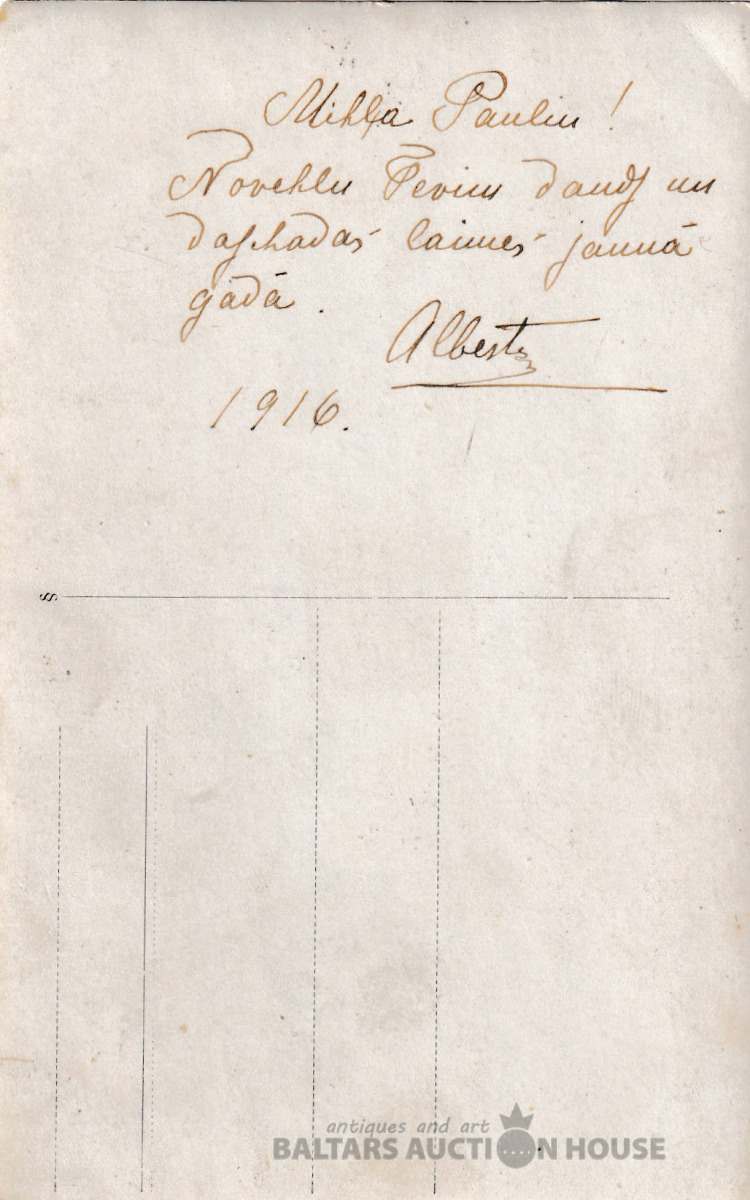 Mihļa Paulin!
Novehlu Tevim daudſ un
daſchadas laimes jaunā
gadā.
Alberts
1916.
antiques and art
BALTARS AUCTION HOUSE